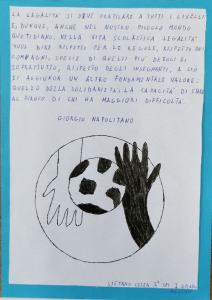 LA LEGALITÀ SI DEVE PRATICARE A TUTTI I LIVELLI
E, DUNQUE, ANCHE NEL NOSTRO PICCOLO MONDO
QUOTIDIANO. NELLA VITA SCOLASTICA LEGALITÀ
VUOL DIRE RISPETTO PER LE REGOLE, RISPETTO DEI
COMPAGNI, SPECIE DI QUELLI PIÙ DEBOLI E
SOPRATTUTTO, RISPETTO DEGLI INSEGNANTI. A CIÒ
SI AGGIUNGA UN ALTRO FONDAMENTALE VALORE:
QUELLO DELLA SOLIDARIETÀ, LA CAPACITÀ DI STARE
AL FIANCO DI CHI HA MAGGIORI DIFFICOLTÀ.
GIORGIO NAPOLITANO
STEFANO